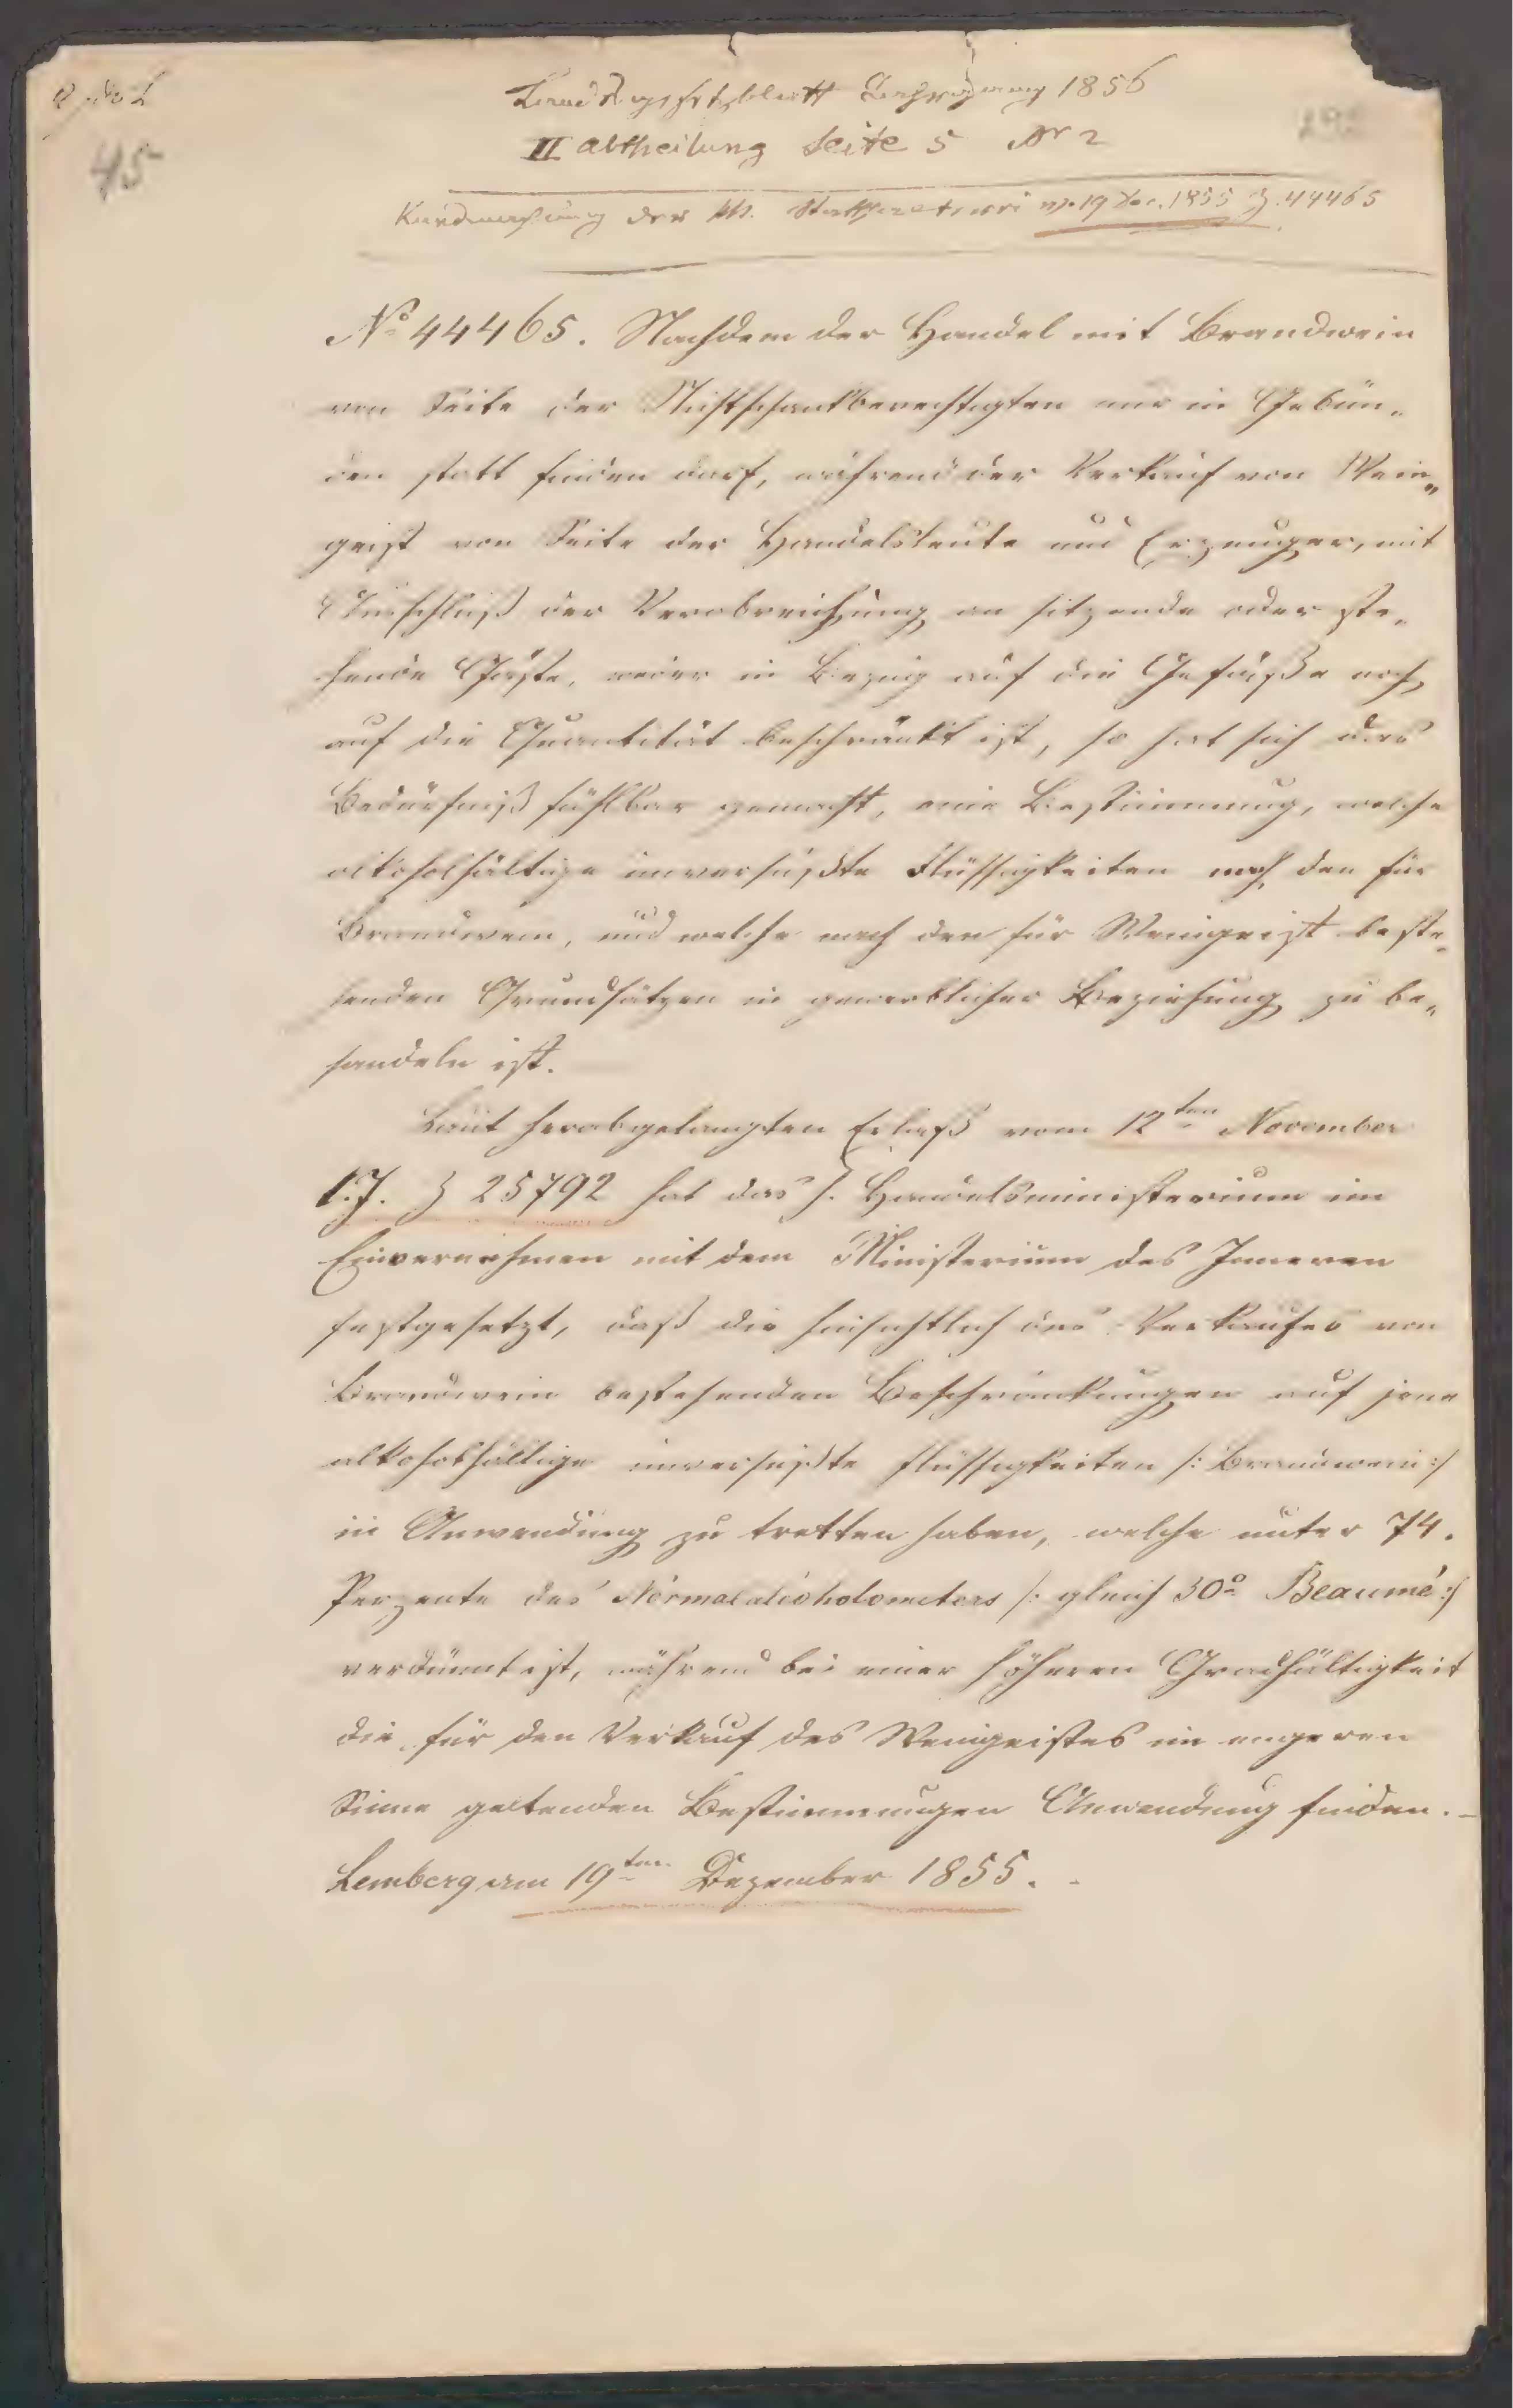 45
Landesgesetzblatt 1856
II Abtheilung Seite 5 Nr 2
Kundmachung der kk. Statthalterei v. 19 Dec. 1855 Z. 44465
No 44465. Nachdem der Handel mit Brandwein
von Seite der Nichtschankberechtigten nur in Gebün„
den statt finden darf, während der Verkauf von Wein„
geist von Seite der Handelsleute und Erzeuger, mit
Ausschluß der Verabreichung an sitzende oder ste„
hende Gäste, weder in Bezug auf die Gefäße noch
auf die Quantität beschränkt ist, so hat sich das
Bedürfniß fühlbar gemacht, eine Bestimmung, welche
alkoholhältige unversüßte Flüssigkeiten nach den für
Brandwein, und welche nach den für Weingeist beste„
henden Grundsätzen in gewerblicher Beziehung zu be„
handeln ist.
Laut herabgelangten Erlaß vom 12ten November
l. J. Z 25792 hat das h. Handelsministerium im
Einvernehmen mit dem Ministerium des Inneren
festgesetzt, daß die hinsichtlich des Verkaufes von
Brandwein bestehenden Beschränkungen auf jene
alkoholhältige unversüßte Flüssigkeiten /: Brandwein :/
in Anwendung zu tretten haben, welche unter 74.
Perzente des Normalalcoholometers /: gleich 30o Beaumé :/
verdünnt ist, während bei einer höheren Gradhältigkeit
die für den Verkauf des Weingeistes im engeren
Sinne geltenden Bestimmungen Anwendung finden. –
Lemberg am 19ten Dezember 1855. -